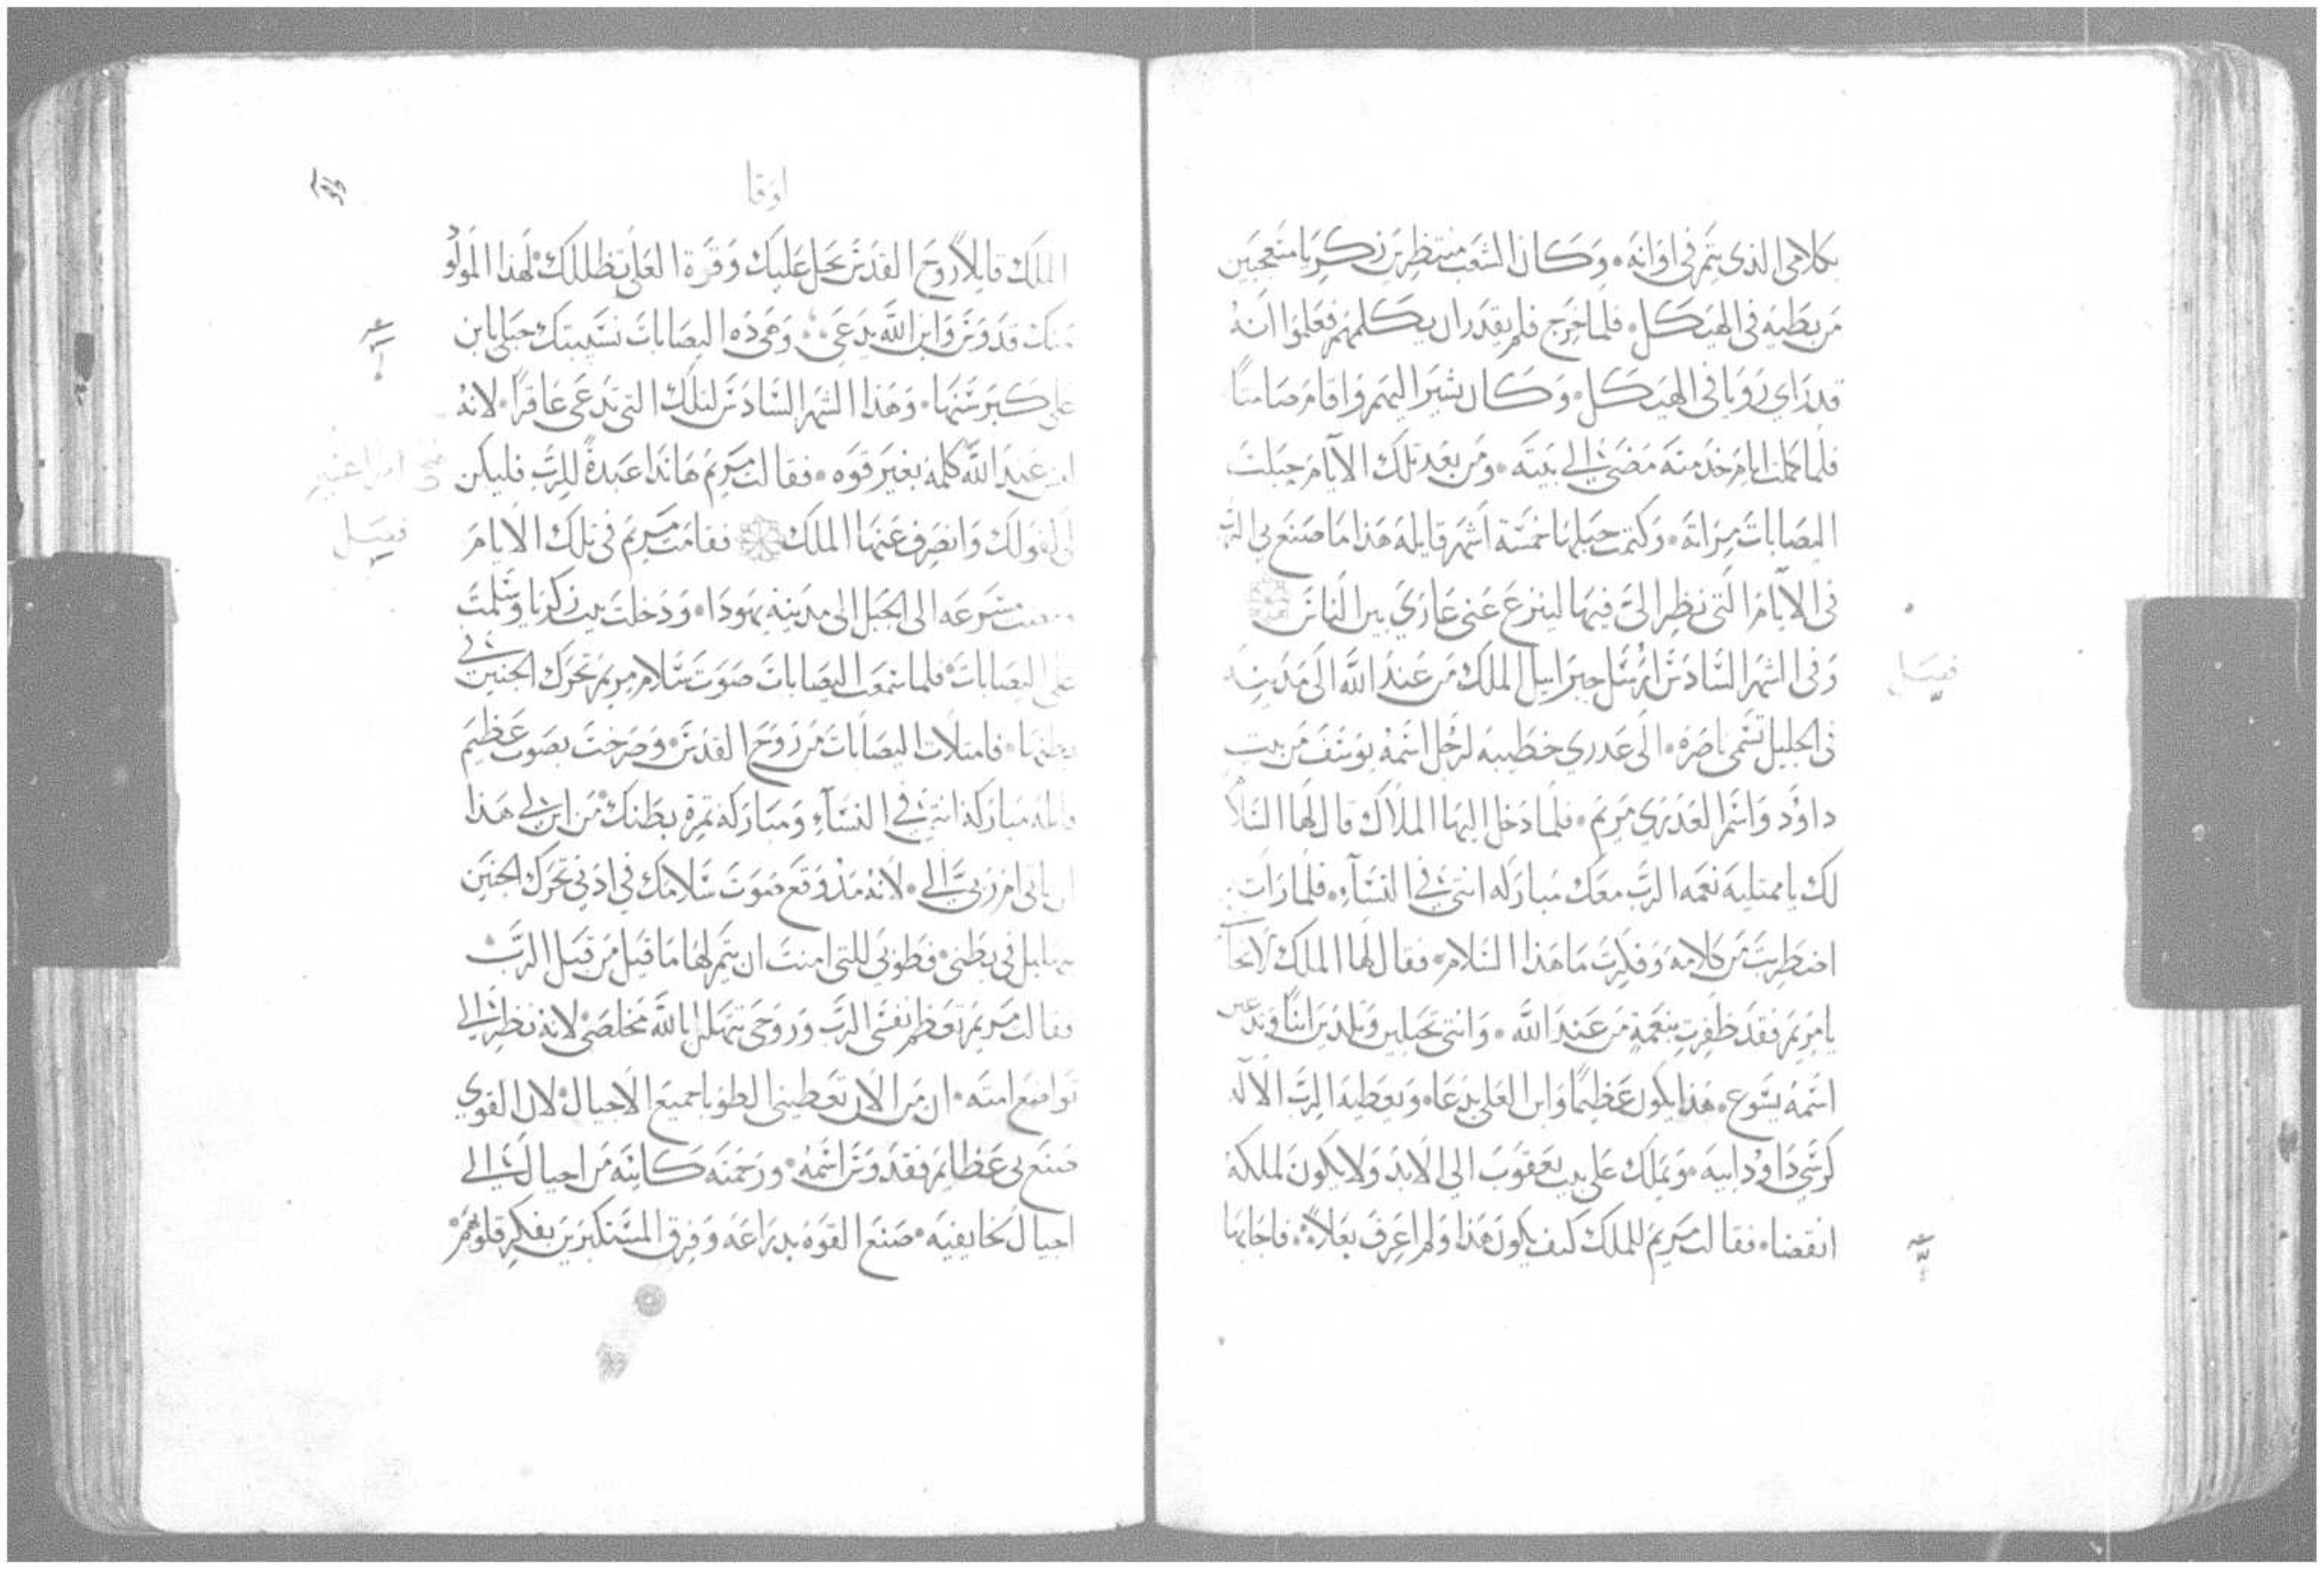 بكلامي الذي يتم في اوانه وكان الشعب منتظرين زكريا متعجبين
من بطيه في الهيكل فلما خرج فلم يقدر ان يكلمهم فعلموا انه
قد راي رويا في الهيكل وكان يشير اليهم واقام صامتا
فلما كملت ايام خدمته مضى الى بيته ومن بعد تلك الايام حبلت
اليصابات مراته وكتمت حبلها خمسة اشهر قايله هذا ما صنع بي الرب
في الايام التي نظر الي فيها لينزع عني عاري بين الناس
فصل
وفي الشهر السادس ارسل جبراييل الملك من عند الله الى مدينه
في الجليل تسمى ناصره الى عدري خطيبه لرجل اسمه يوسف من بيت
داود واسم العدري مريم فلما دخل اليها الملاك قال لها السلا
لك يا ممتليه نعمه الرب معك مباركه انتي في النساء فلما رات
اضطربت من كلامه وفكرت ما هذا السلام فقال لها الملك لا تخا
يا مريم فقد ظفرت بنعمة من عند الله وانتي تحبلين وتلدين ابنا وتدعين
اسمه يسوع هذا يكون عظيما وابن العلي يدعا ويعطيه الرب الاله
كرسي داود ابيه ويملك على بيت يعقوب الى الابد ولا يكون لملكه
انقضا فقالت مريم للملك كيف يكون هذا ولم اعرف بعلا فاجابها
لوقا
الملك قايلا روح القدس يحل عليك وقوة العلي تظللك لهذا المولو
منك قدوس وابن الله يدعى وهوده اليصابات نسيبتك حبلى بابن
على كبر سنها وهذا الشهر السادس لتلك التي تدعى عاقرا لانه
ليس عند الله كلمه بغير قوه فقالت مريم هاندا عبدة للرب فليكن
لي كقولك وانصرف عنها الملك فقامت مريم في تلك الايام
فصل
ومضت مسرعه الى الجبل الى مدينه يهودا ودخلت بيت زكريا وسلمت
على اليصابات فلما سمعت اليصابات صوت سلام مريم تحرك الجنين في
بطنها فامتلات اليصابات من روح القدس وصرخت بصوت عظيم
قايله مباركه انتي في النساء ومباركه تمرة بطنك من اين لي هذا
ان ياتي ام ربي الي لانه مذ وقع صوت سلامك في اذني تحرك الجنين
بتهليل في بطني فطوبي للتي امنت ان يتم لها ما قيل من قبل الرب
فقالت مريم تعظم نفسي الرب وروحي تهلل بالله مخلصي لانه نظر الى
تواضع امته ان من الان تعطيني الطوبا جميع الاجيال لان القوي
صنع بي عظايم فقدوس اسمه ورحمته كاينه من اجيال الى
اجيال لخايفيه صنع القوه بدراعه وفرق المستكبرين بفكر قلوبهم